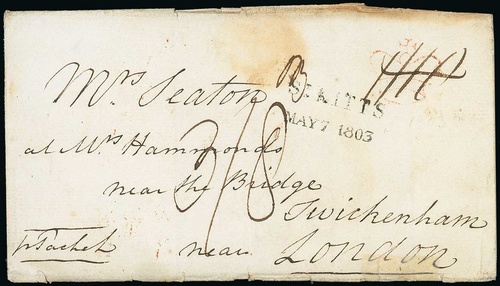 Mrs Seaton
ST. KITTS
MAY 7 1803
at Mrs Hammonds
3/8
near the Bridge
Twickenham
near
London
p Packet